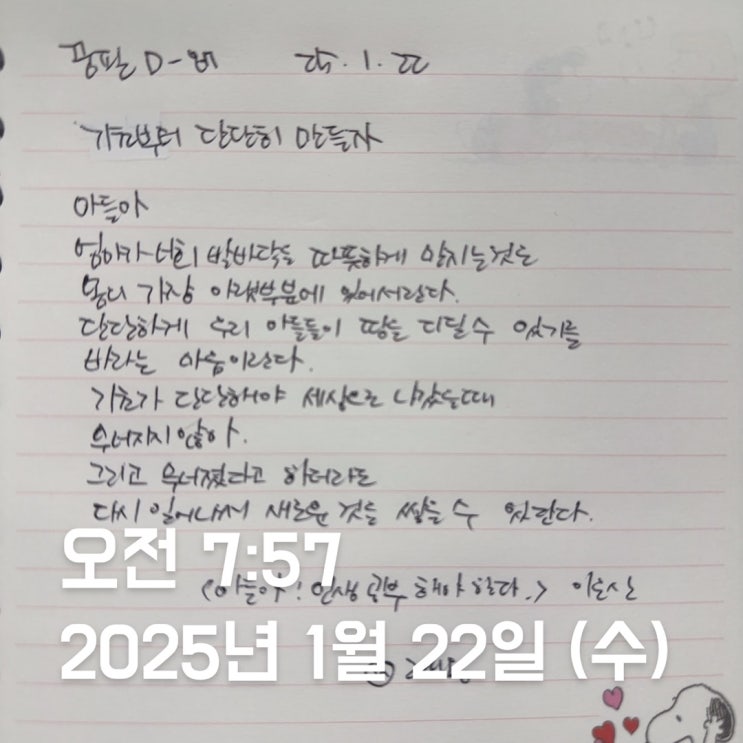 25. 1. 22
기초부터 단단히 만들자
아들아
엄마가 너희 발바닥을 따뜻하게 만지는것은
몸의 가장 아랫부분에 있어서란다.
단단하게 우리 아들들이 땅을 디딜 수 있기를
바라는 마음이란다.
기초가 단단해야 세상으로 나갔을때
무너지지 않아.
그리고 무너졌다고 하더라도
다시 일어나서 새로운 것을 쌓을 수 있단다.
오전 7:57
<아들아! 인생 공부 해야 한다.>
2025년 1월 22일 (수)